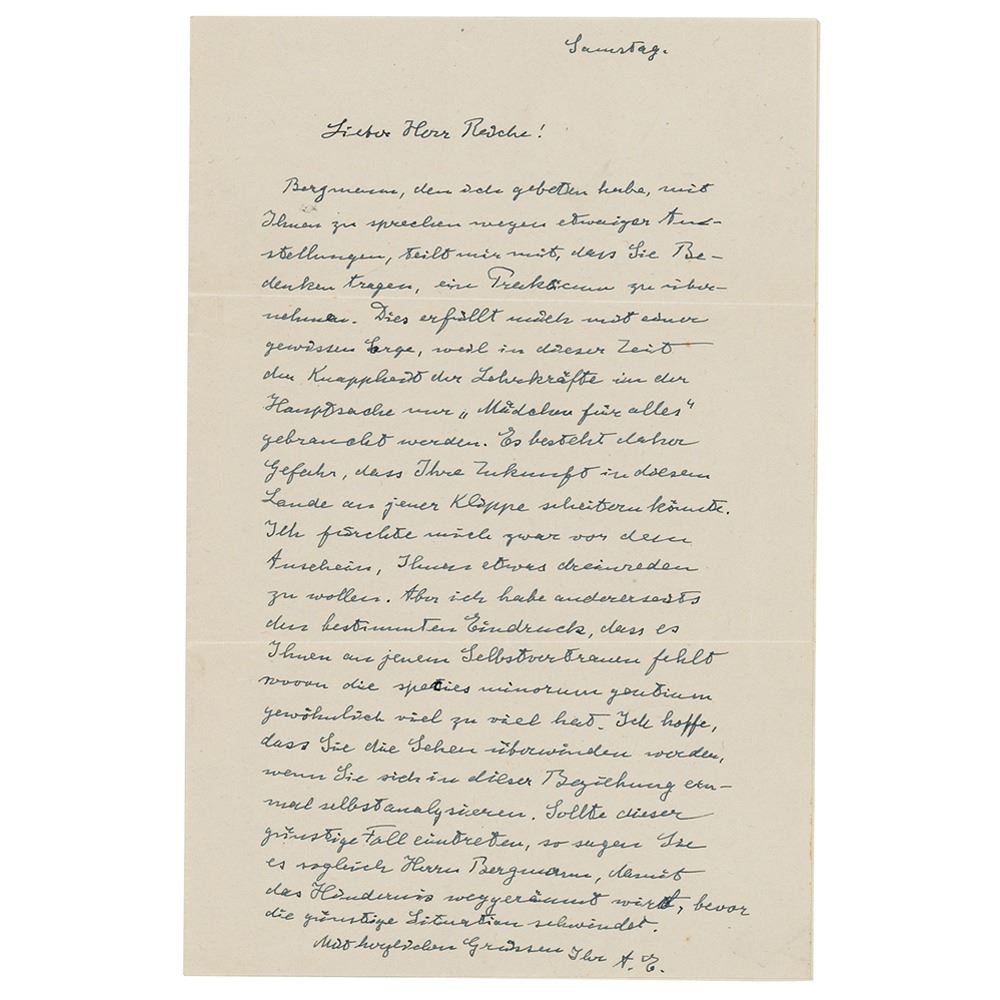 Samstag.
Lieber Herr Reiche!
Bergmann, den ich gebeten habe, mit
Ihnen zu sprechen wegen etwaiger An-
stellungen, teilt mir mit, dass Sie Be-
denken tragen, ein Praktikum zu über-
nehmen. Dies erfüllt mich mit einer
gewissen Sorge, weil in dieser Zeit
der Knappheit der Lehrkräfte in der
Hauptsache nur „Mädchen für alles"
gebraucht werden. Es besteht daher
Gefahr, dass Ihre Zukunft in diesem
Lande an jener Klippe scheitern könnte.
Ich fürchte mich zwar vor dem
Anschein, Ihnen etwas dreinreden
zu wollen. Aber ich habe andererseits
den bestimmten Eindruck, dass es
Ihnen an jenem Selbstvertrauen fehlt
wovon die species minorum gentium
gewöhnlich viel zu viel hat. Ich hoffe,
dass Sie die Scheu überwinden werden,
wenn Sie sich in dieser Beziehung ein-
mal selbstanalysieren. Sollte dieser
günstige Fall eintreten, so sagen Sie
es sogleich Herrn Bergmann, damit
das Hindernis weggeräumt wird, bevor
die günstige Situation schwindet.
Mit herzlichen Grüssen Ihr A. E.